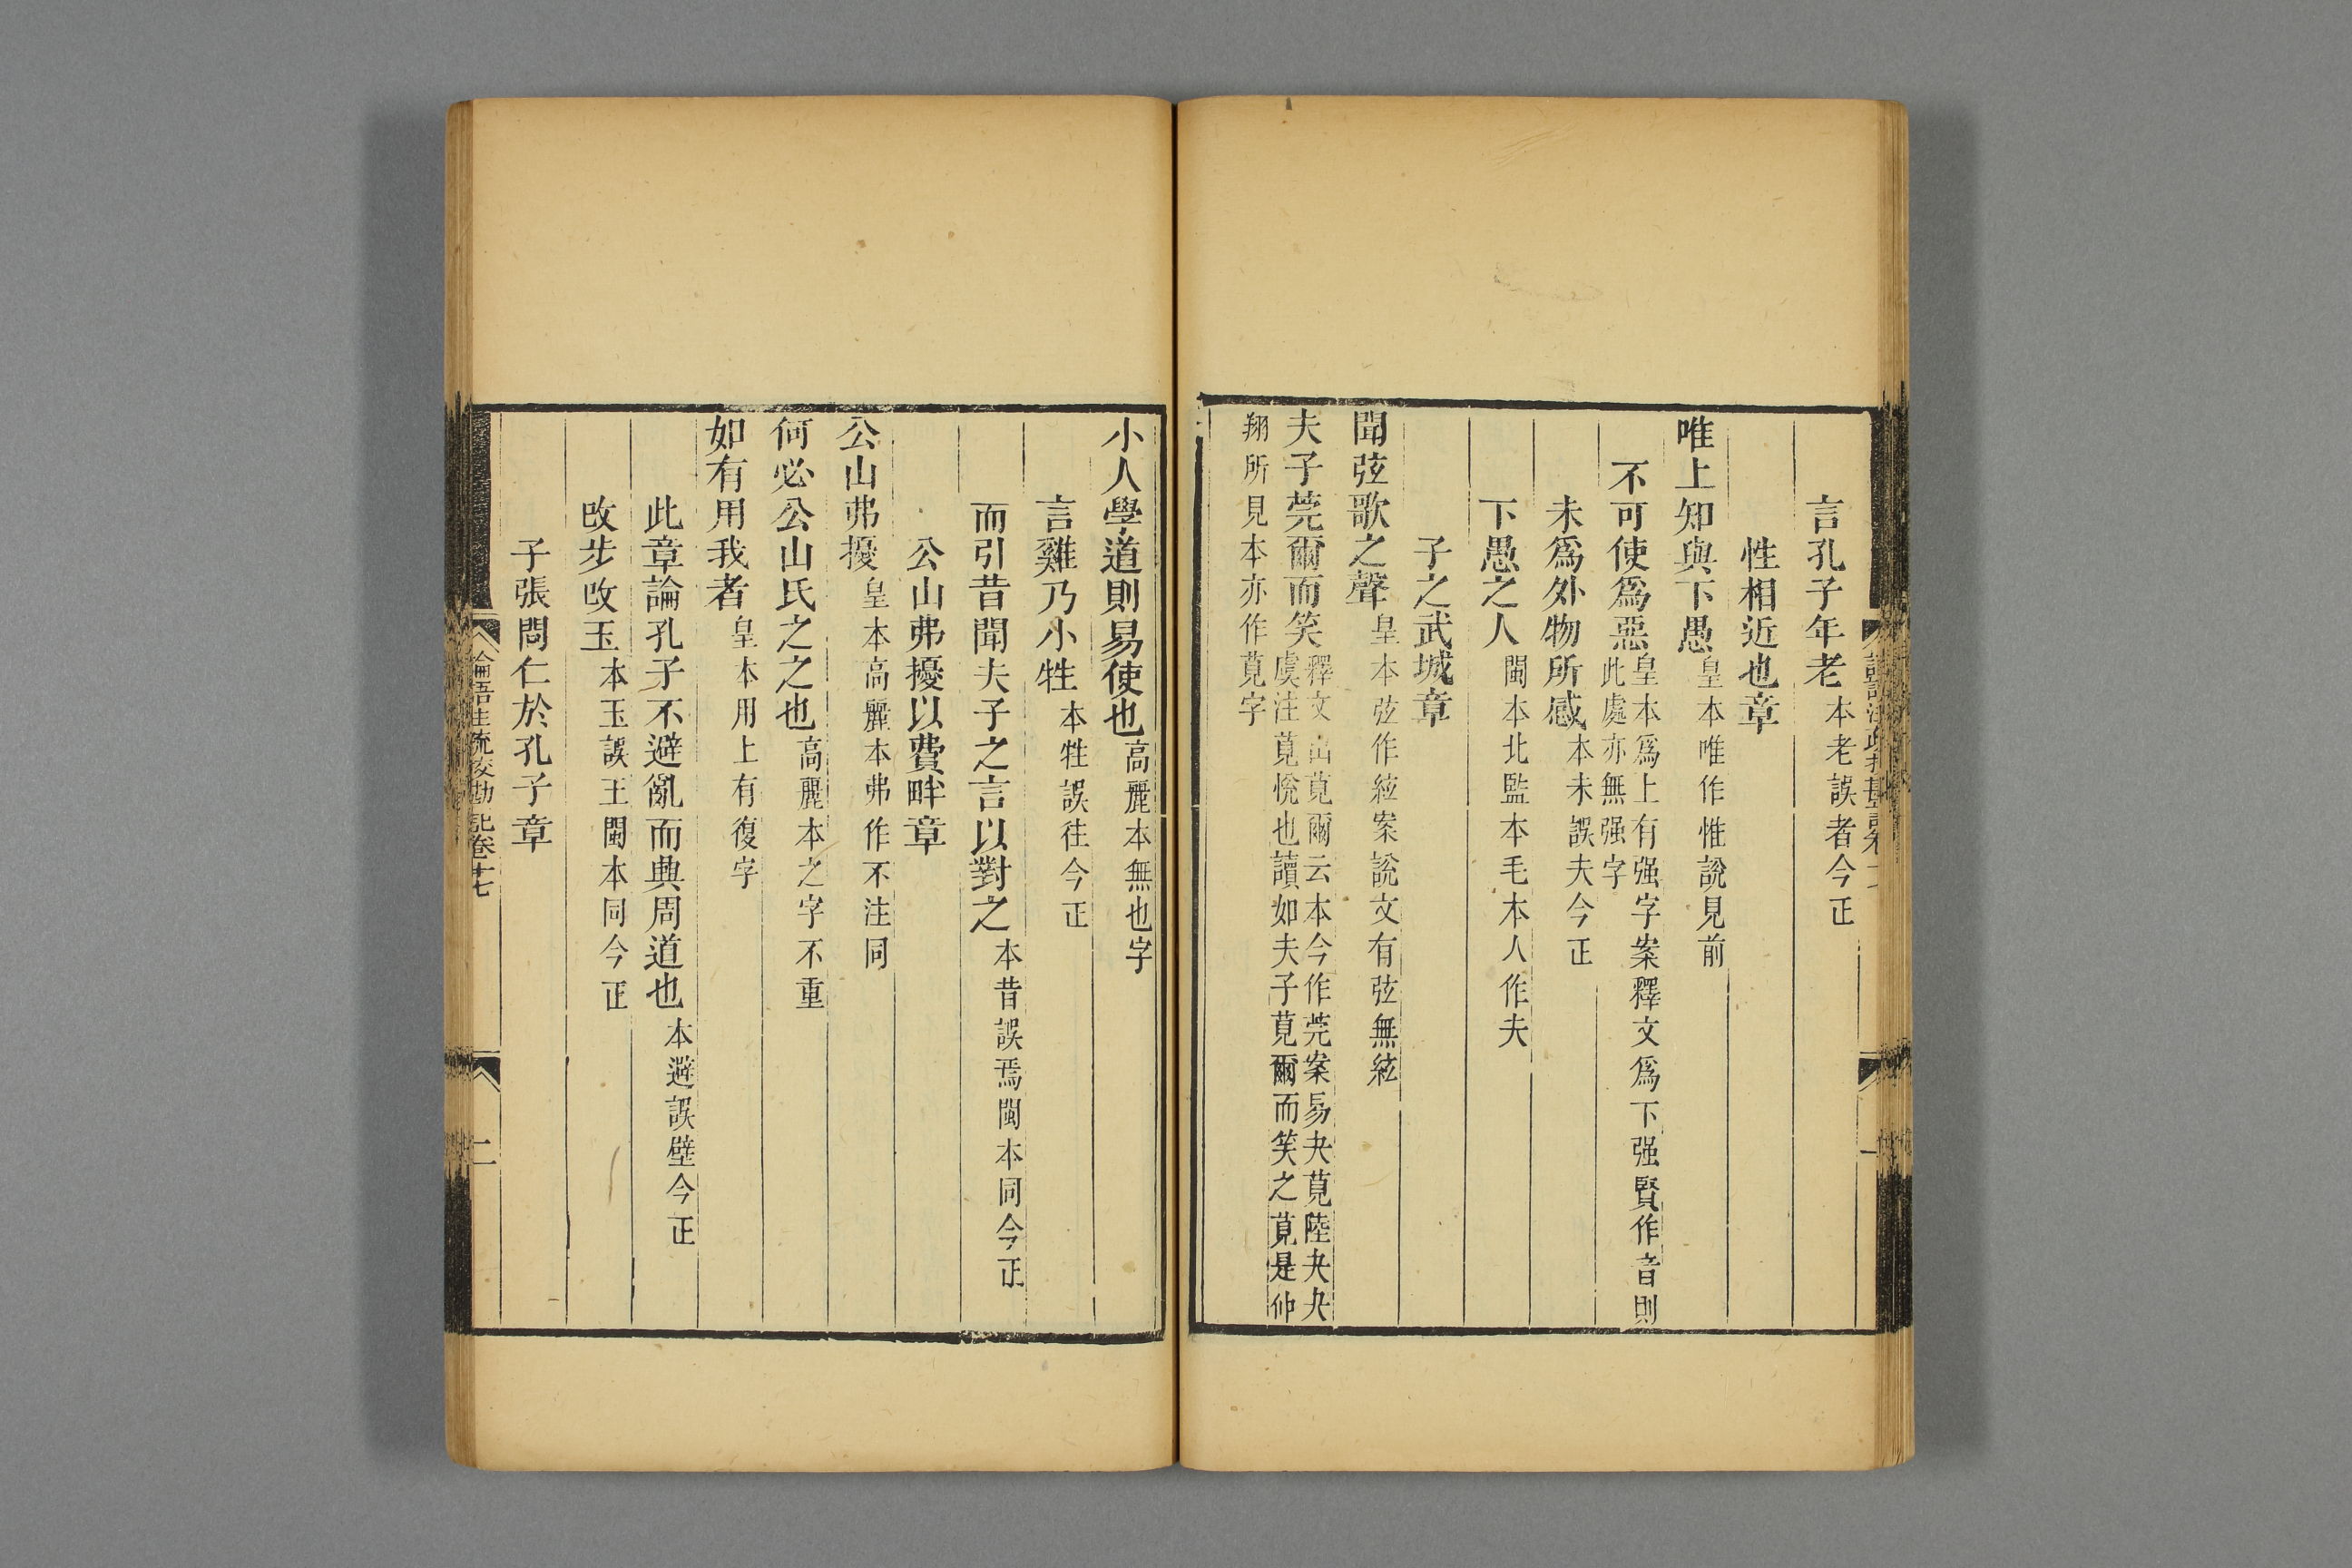 言孔子年老本老誤者今正
性相近也章
唯上知與下愚皇本唯作惟說見前
不可使爲惡皇本爲上有强字案釋文爲下强賢作音則
此處亦無强字
未爲外物所感本未誤夫今正
下愚之人閩本北監本毛本人作夫
子之武城章
聞弦歌之聲皇本弦作絃案說文有弦無絃
夫子莞爾而笑釋文出莧爾云本今作莞案易夬莧陸夬夬
虞注莧恱也讀如夫子莧爾而笑之莧是仲
翔所見本亦作莧字
小人學道則易使也高麗本無也字
言雞乃小牲本牲誤往今正
而引昔聞夫子之言以對之本昔誤焉閩本同今正
公山弗擾以費畔章
公山弗擾皇本高麗本弗作不注同
何必公山氏之之也高麗本之字不重
如有用我者皇本用上有復字
此章論孔子不避亂而興周道也本避誤壁今正
改步改玉本玉誤王閩本同今正
子張問仁於孔子章
論語注疏挍勘記卷十七
二